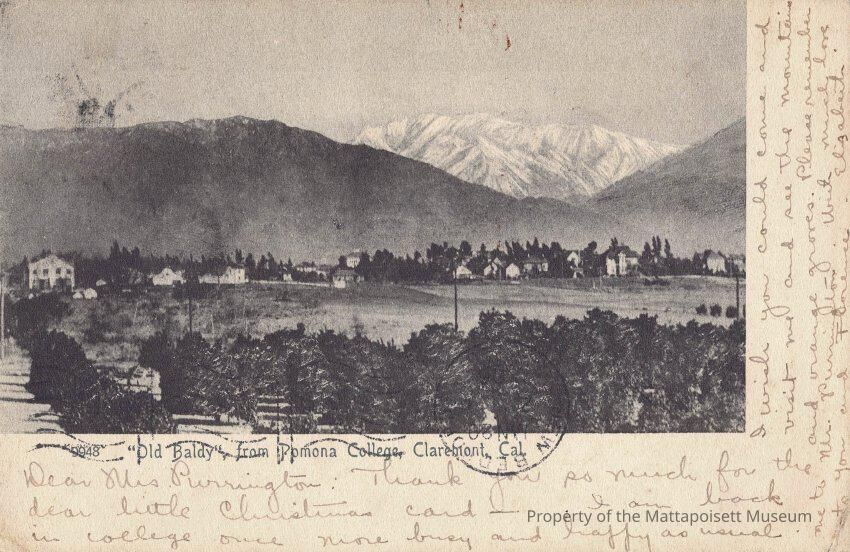 5948 "Old Baldy", from Pomona College, Claremont, Cal.
Dear Mrs Purrington: Thank you so much for the
dear little Christmas card – I am back
in college once more busy and happy as usual.
I wish you could come and
visit me and see the mountains
and orange groves. Please remember
me to Mr. Purrington. With much love
to you and Florence. Elizabeth.
Property of the Mattapoisett Museum